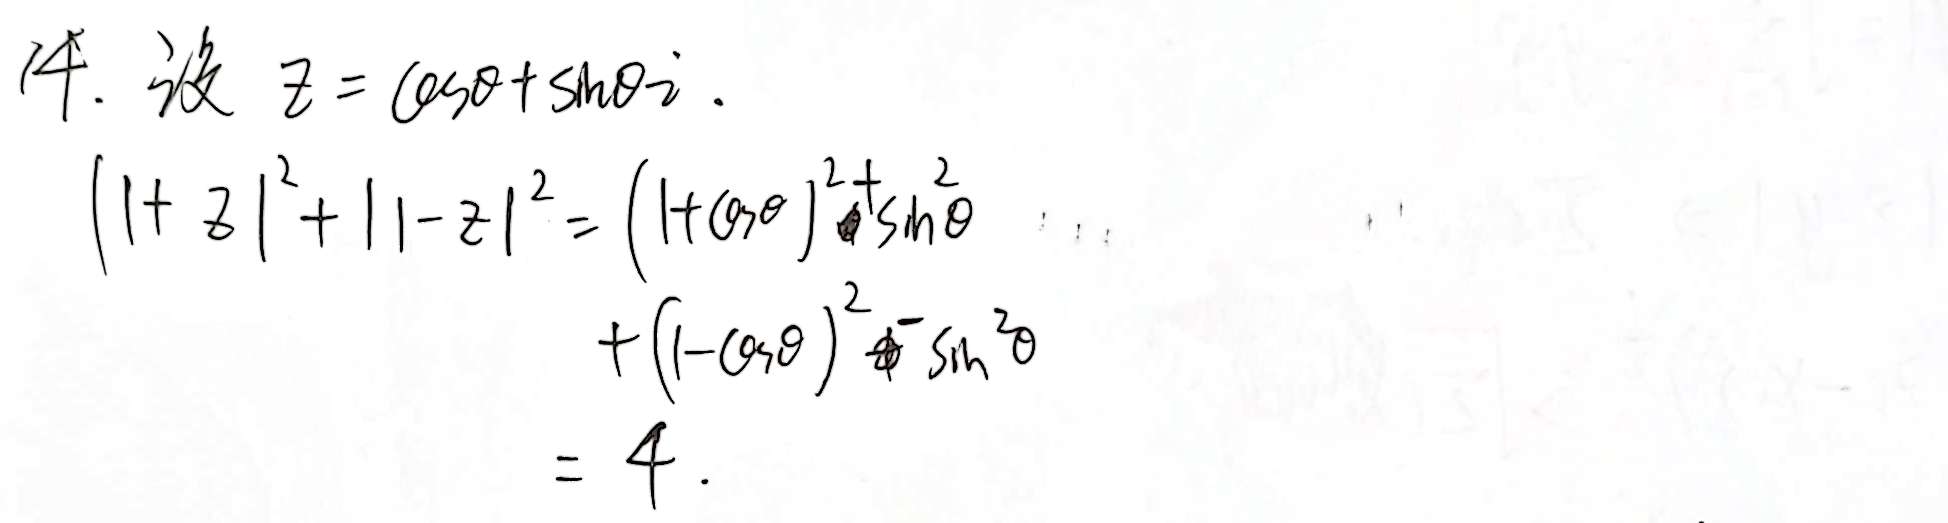 14. 设 z = cosθ+sinθi.
|1+z|²+|1-z|² = (1+cosθ)²+sin²θ
+(1-cosθ)²-sin²θ
= 4.